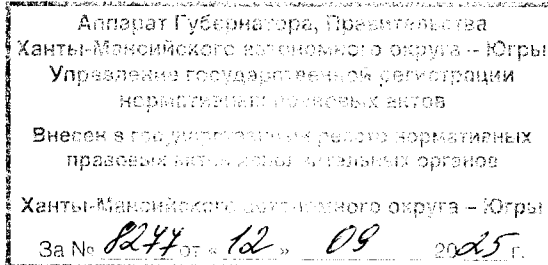 Аппарат Губернатора, Правительства
Ханты-Мансийского автономного округа – Югры
Управление государственной регистрации
нормативных правовых актов
Внесен в государственный реестр нормативных
правовых актов исполнительных органов
Ханты-Мансийского автономного округа – Югры
За № 8277 от « 12 » 09 2025 г.